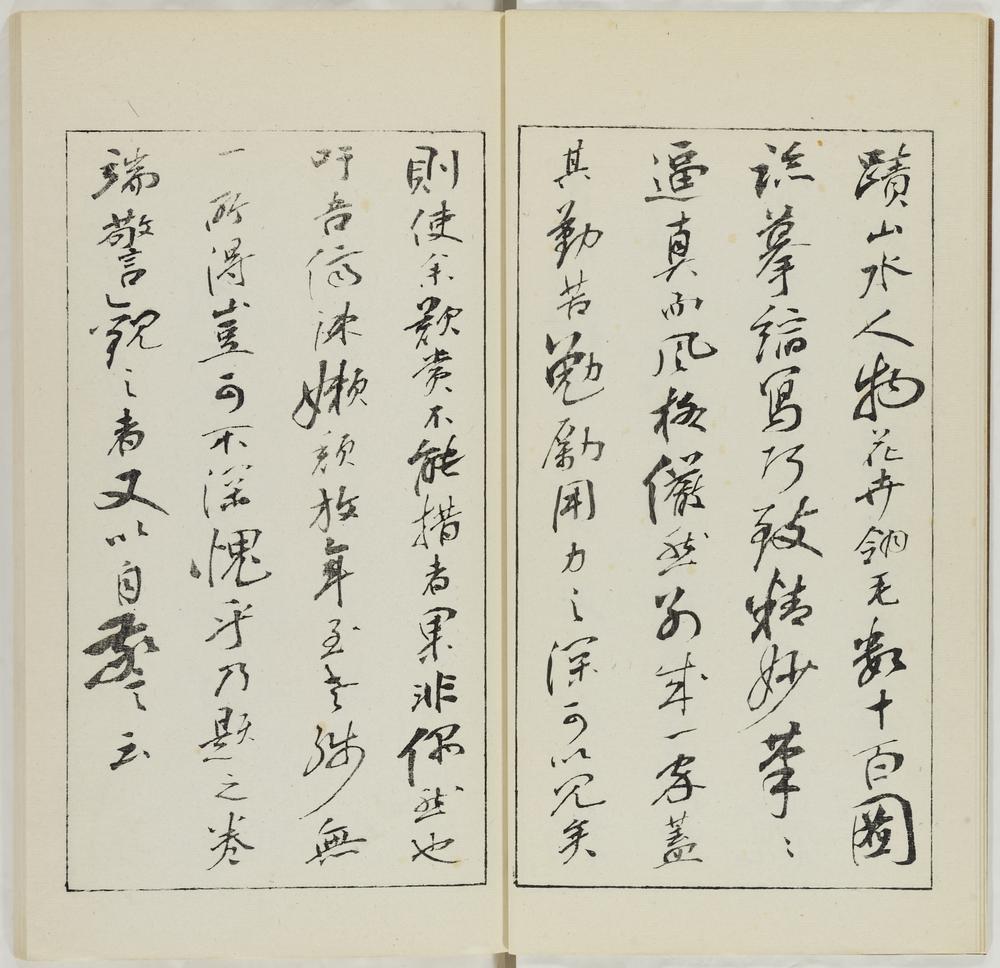 蹟山水人物花卉翎毛数十百圖
臨摹縮寫巧致精妙筆〻
逼真而風格儼然別成一家蓋
其勤苦勉勵用力之深可以見矣
則使余歎賞不能措者果非偶然也
吁吾儕疎嬾頽放年至老殊無
一所得豈可不深愧乎乃題之巻
端警観之者又以自警云